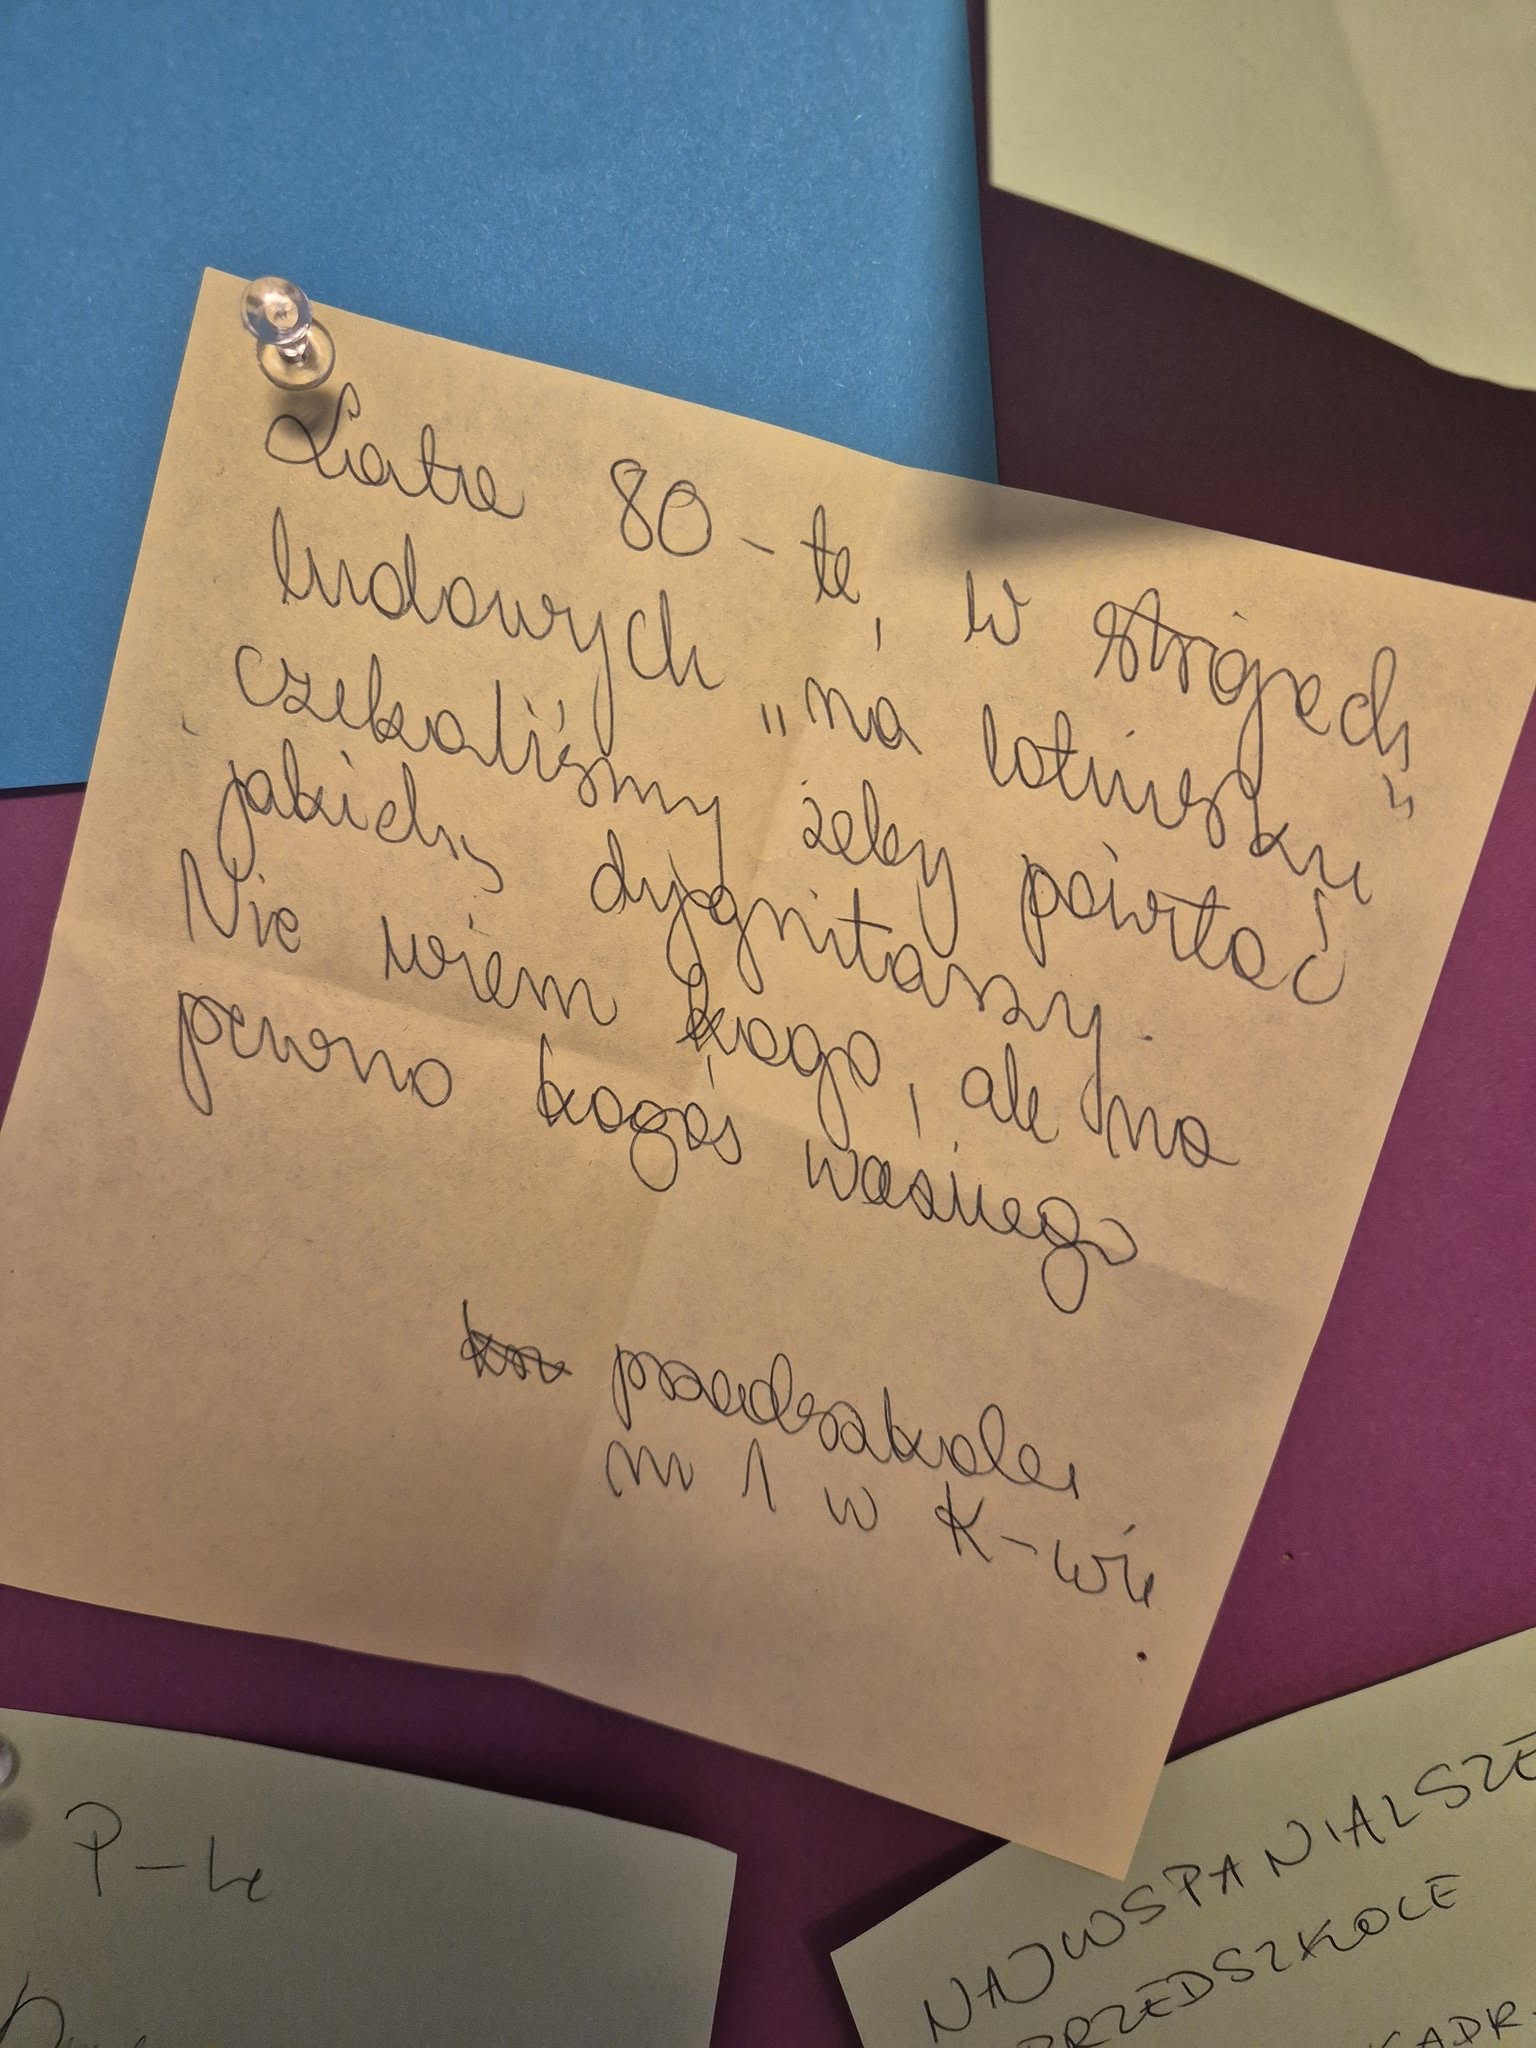 Lata 80-te, w strojach
ludowych „na lotnisku”
czekaliśmy żeby powitać
jakichś dygnitarzy.
Nie wiem kogo, ale na
pewno kogoś ważnego
przedszkole
nr 1 w K-wie
P-le
NAJWSPANIALSZE
PRZEDSZKOLE